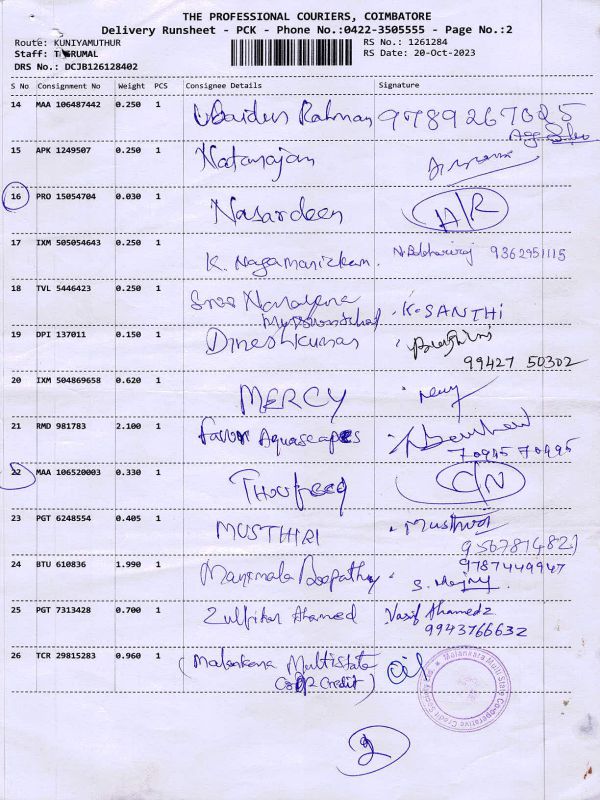 THE PROFESSIONAL COURIERS, COIMBATORE
Delivery Runsheet - PCK - Phone No.:0422-3505555 - Page No.:2
Route: KUNIYAMUTHUR
RS No.: 1261284
Staff:
RS Date: 20-Oct-2023
DRS No.: DCJB126128402
S No Consignment No Weight PCS Consignee Details Signature
14 MAA 106487442 0.250 1 Ubaidur Rahman
15 APK 1249507 0.250 1 Natarajan
16 PRO 15054704 0.030 1 Nasardeen A/R
17 IXM 505054643 0.250 1 K. Nagamanickam. 9362951115
18 TVL 5446423 0.250 1 Sree Narayana K. SANTHI
19 DPI 137011 0.150 1 Dineshkumar
99427 50302
20 IXM 504869658 0.620 1 MERCY
21 RMD 981783 2.100 1 Favor Aquascapes
70945 70495
22 MAA 106520003 0.330 1 Thoufeeq C/N
23 PGT 6248554 0.405 1 MUSTHIRI
24 BTU 610836 1.990 1 Manimala Boopathy 9787449947
25 PGT 7313428 0.700 1 Zulfikar Ahamed Vasif Ahamed
9943766632
26 TCR 29815283 0.960 1 (Malankara Multistate
Credit)
Malankara Multi State Co-operative Credit Society Ltd
2